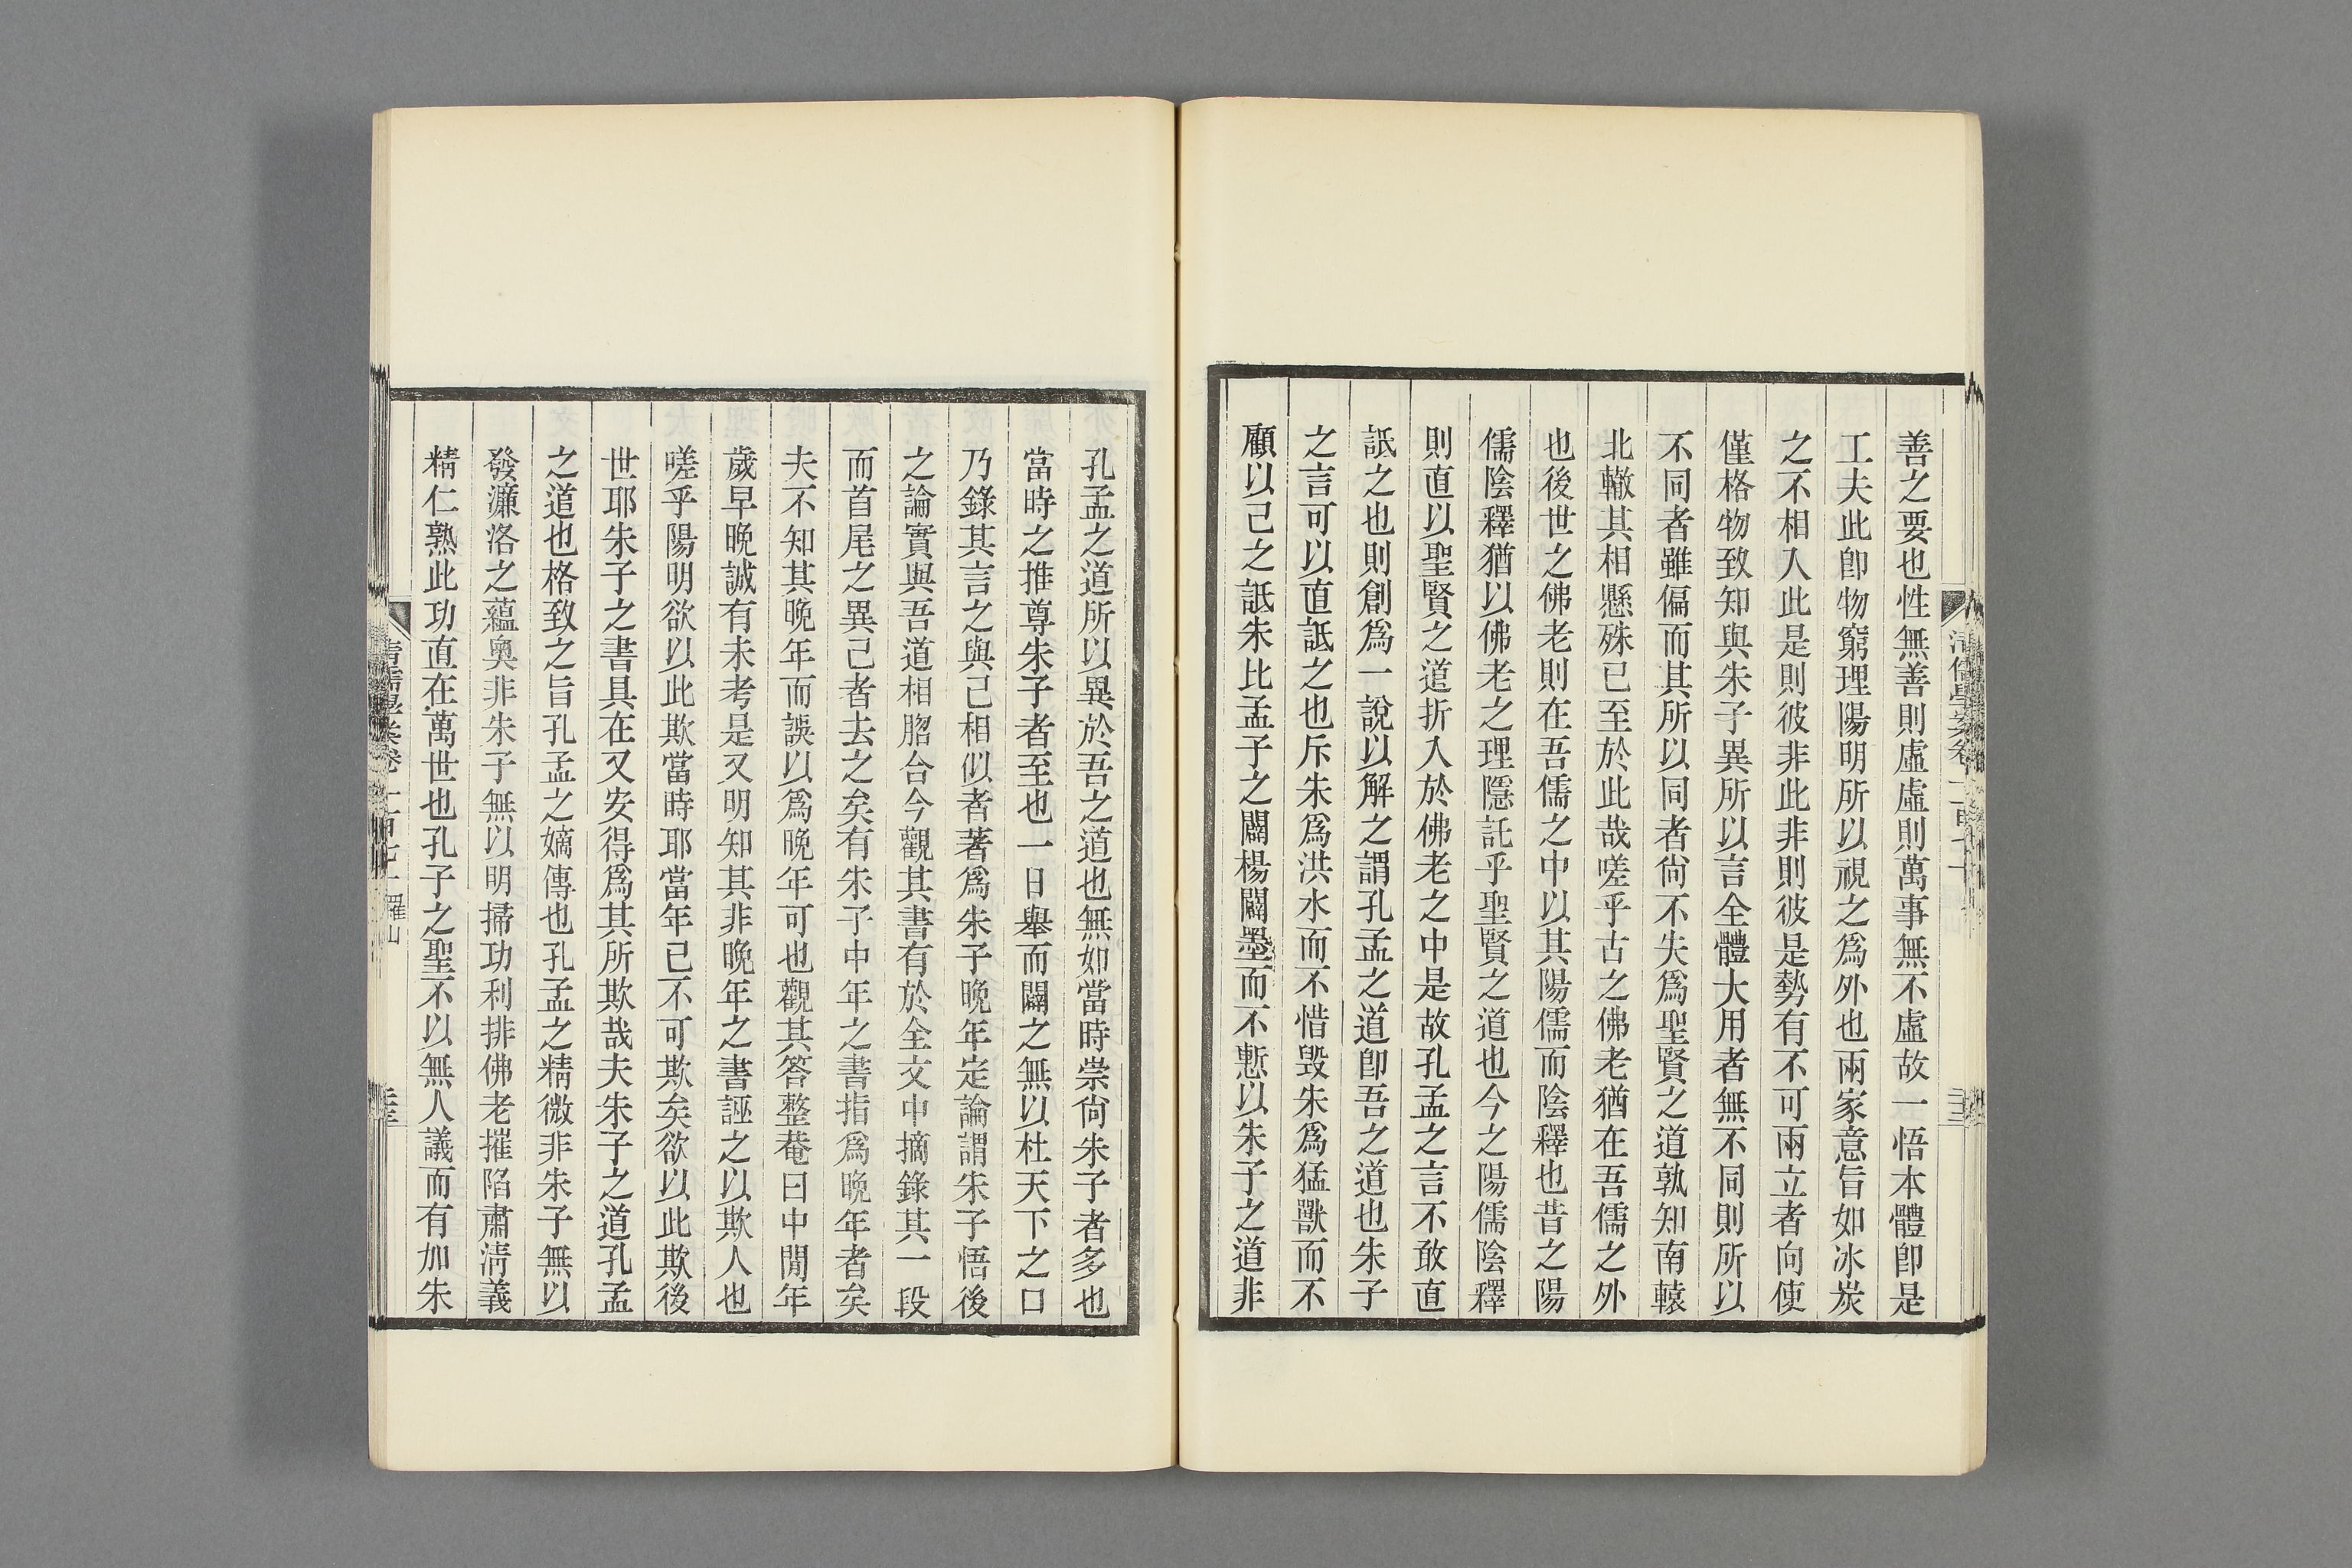 善之要也性無善則虛虛則萬事無不虛故一悟本體卽是
工夫此卽物窮理陽明所以視之爲外也兩家意旨如冰炭
之不相入此是則彼非此非則彼是勢有不可兩立者向使
僅格物致知與朱子異所以言全體大用者無不同則所以
不同者雖偏而其所以同者尙不失爲聖賢之道孰知南轅
北轍其相懸殊已至於此哉嗟乎古之佛老猶在吾儒之外
也後世之佛老則在吾儒之中以其陽儒而陰釋也昔之陽
儒陰釋猶以佛老之理隱託乎聖賢之道也今之陽儒陰釋
則直以聖賢之道折入於佛老之中是故孔孟之言不敢直
詆之也則創爲一說以解之謂孔孟之道卽吾之道也朱子
之言可以直詆之也斥朱爲洪水而不惜毀朱爲猛獸而不
顧以己之詆朱比孟子之闢楊闢墨而不慙以朱子之道非
孔孟之道所以異於吾之道也無如當時崇尙朱子者多也
當時之推尊朱子者至也一日舉而闢之無以杜天下之口
乃錄其言之與己相似者著爲朱子晚年定論謂朱子悟後
之論實與吾道相脗合今觀其書有於全文中摘錄其一段
而首尾之異己者去之矣有朱子中年之書指爲晚年者矣
夫不知其晚年而誤以爲晚年可也觀其答整菴曰中閒年
歲早晚誠有未考是又明知其非晚年之書誣之以欺人也
嗟乎陽明欲以此欺當時耶當年已不可欺矣欲以此欺後
世耶朱子之書具在又安得爲其所欺哉夫朱子之道孔孟
之道也格致之旨孔孟之嫡傳也孔孟之精微非朱子無以
發濂洛之蘊奧非朱子無以明掃功利排佛老摧陷肅淸義
精仁熟此功直在萬世也孔子之聖不以無人議而有加朱